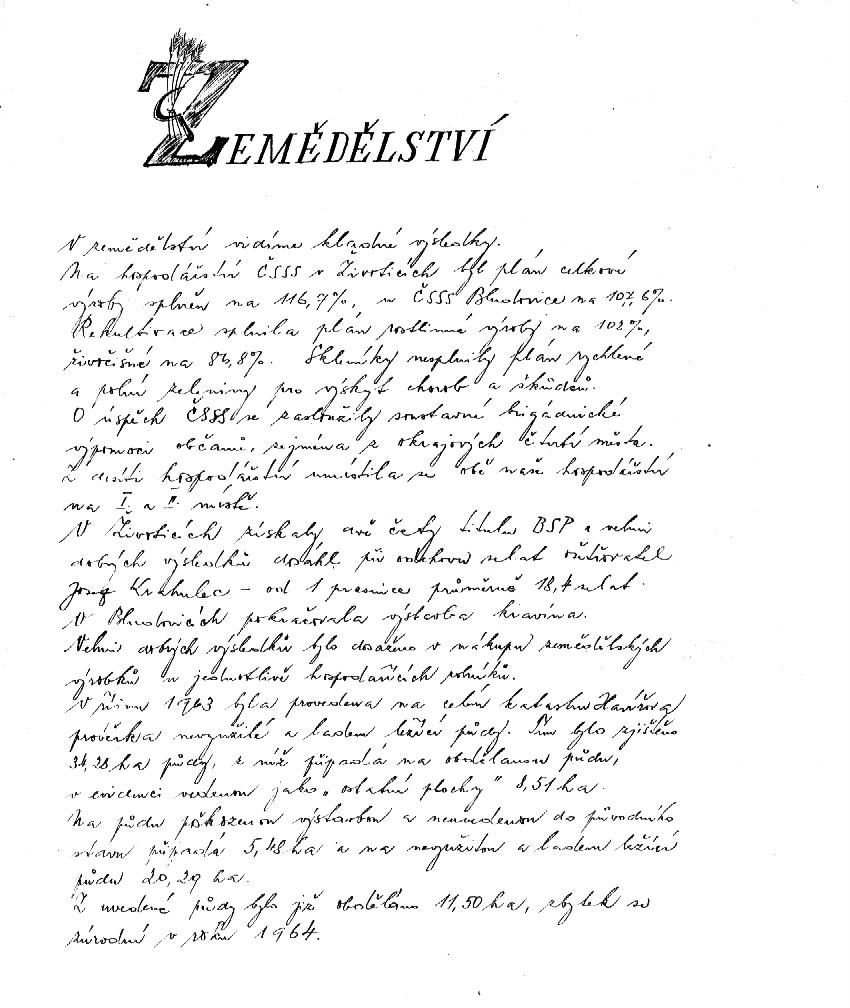 ZEMĚDĚLSTVÍ
V zemědělství vidíme kladné výsledky.
Na hospodářství ČSSS v Životicích byl plán celkové
výroby splněn na 116,7%, u ČSSS Bludovice na 107,6%.
Rekultivace splnila plán rostlinné výroby na 102%,
živočišné na 86,8%. Skleníky nesplnily plán rychlené
a polní zeleniny pro výskyt chorob a škůdců.
O úspěch ČSSS se zasloužily soustavné brigádnické
výpomoci občanů, zejména z okrajových čtvrtí města.
Z desíti hospodářství umístila se obě naše hospodářství
na I. a II. místě.
V Životicích získaly dvě čety titulu BSP a velmi
dobrých výsledků dosáhl při odchovu selat ošetřovatel
Josef Krahulec – od 1 prasnice průměrně 18,4 selat.
V Bludovicích pokračovala výstavba kravína.
Velmi dobrých výsledků bylo dosaženo v nákupu zemědělských
výrobků u jednotlivě hospodařících rolníků.
V říjnu 1963 byla provedena na celém katastru Havířova
prověrka nevyužité a ladem ležící půdy. Tím bylo zjištěno
34,28 ha půdy, z níž připadá na obdělanou půdu,
v evidenci vedenou jako „ostatní plochy" 8,51 ha.
Na půdu poškozenou výstavbou a neuvedenou do původního
stavu připadá 5,48 ha a na nevyužitou a ladem ležící
půdu 20,29 ha.
Z uvedené půdy bylo již obděláno 11,50 ha, zbytek se
zúrodní v roku 1964.